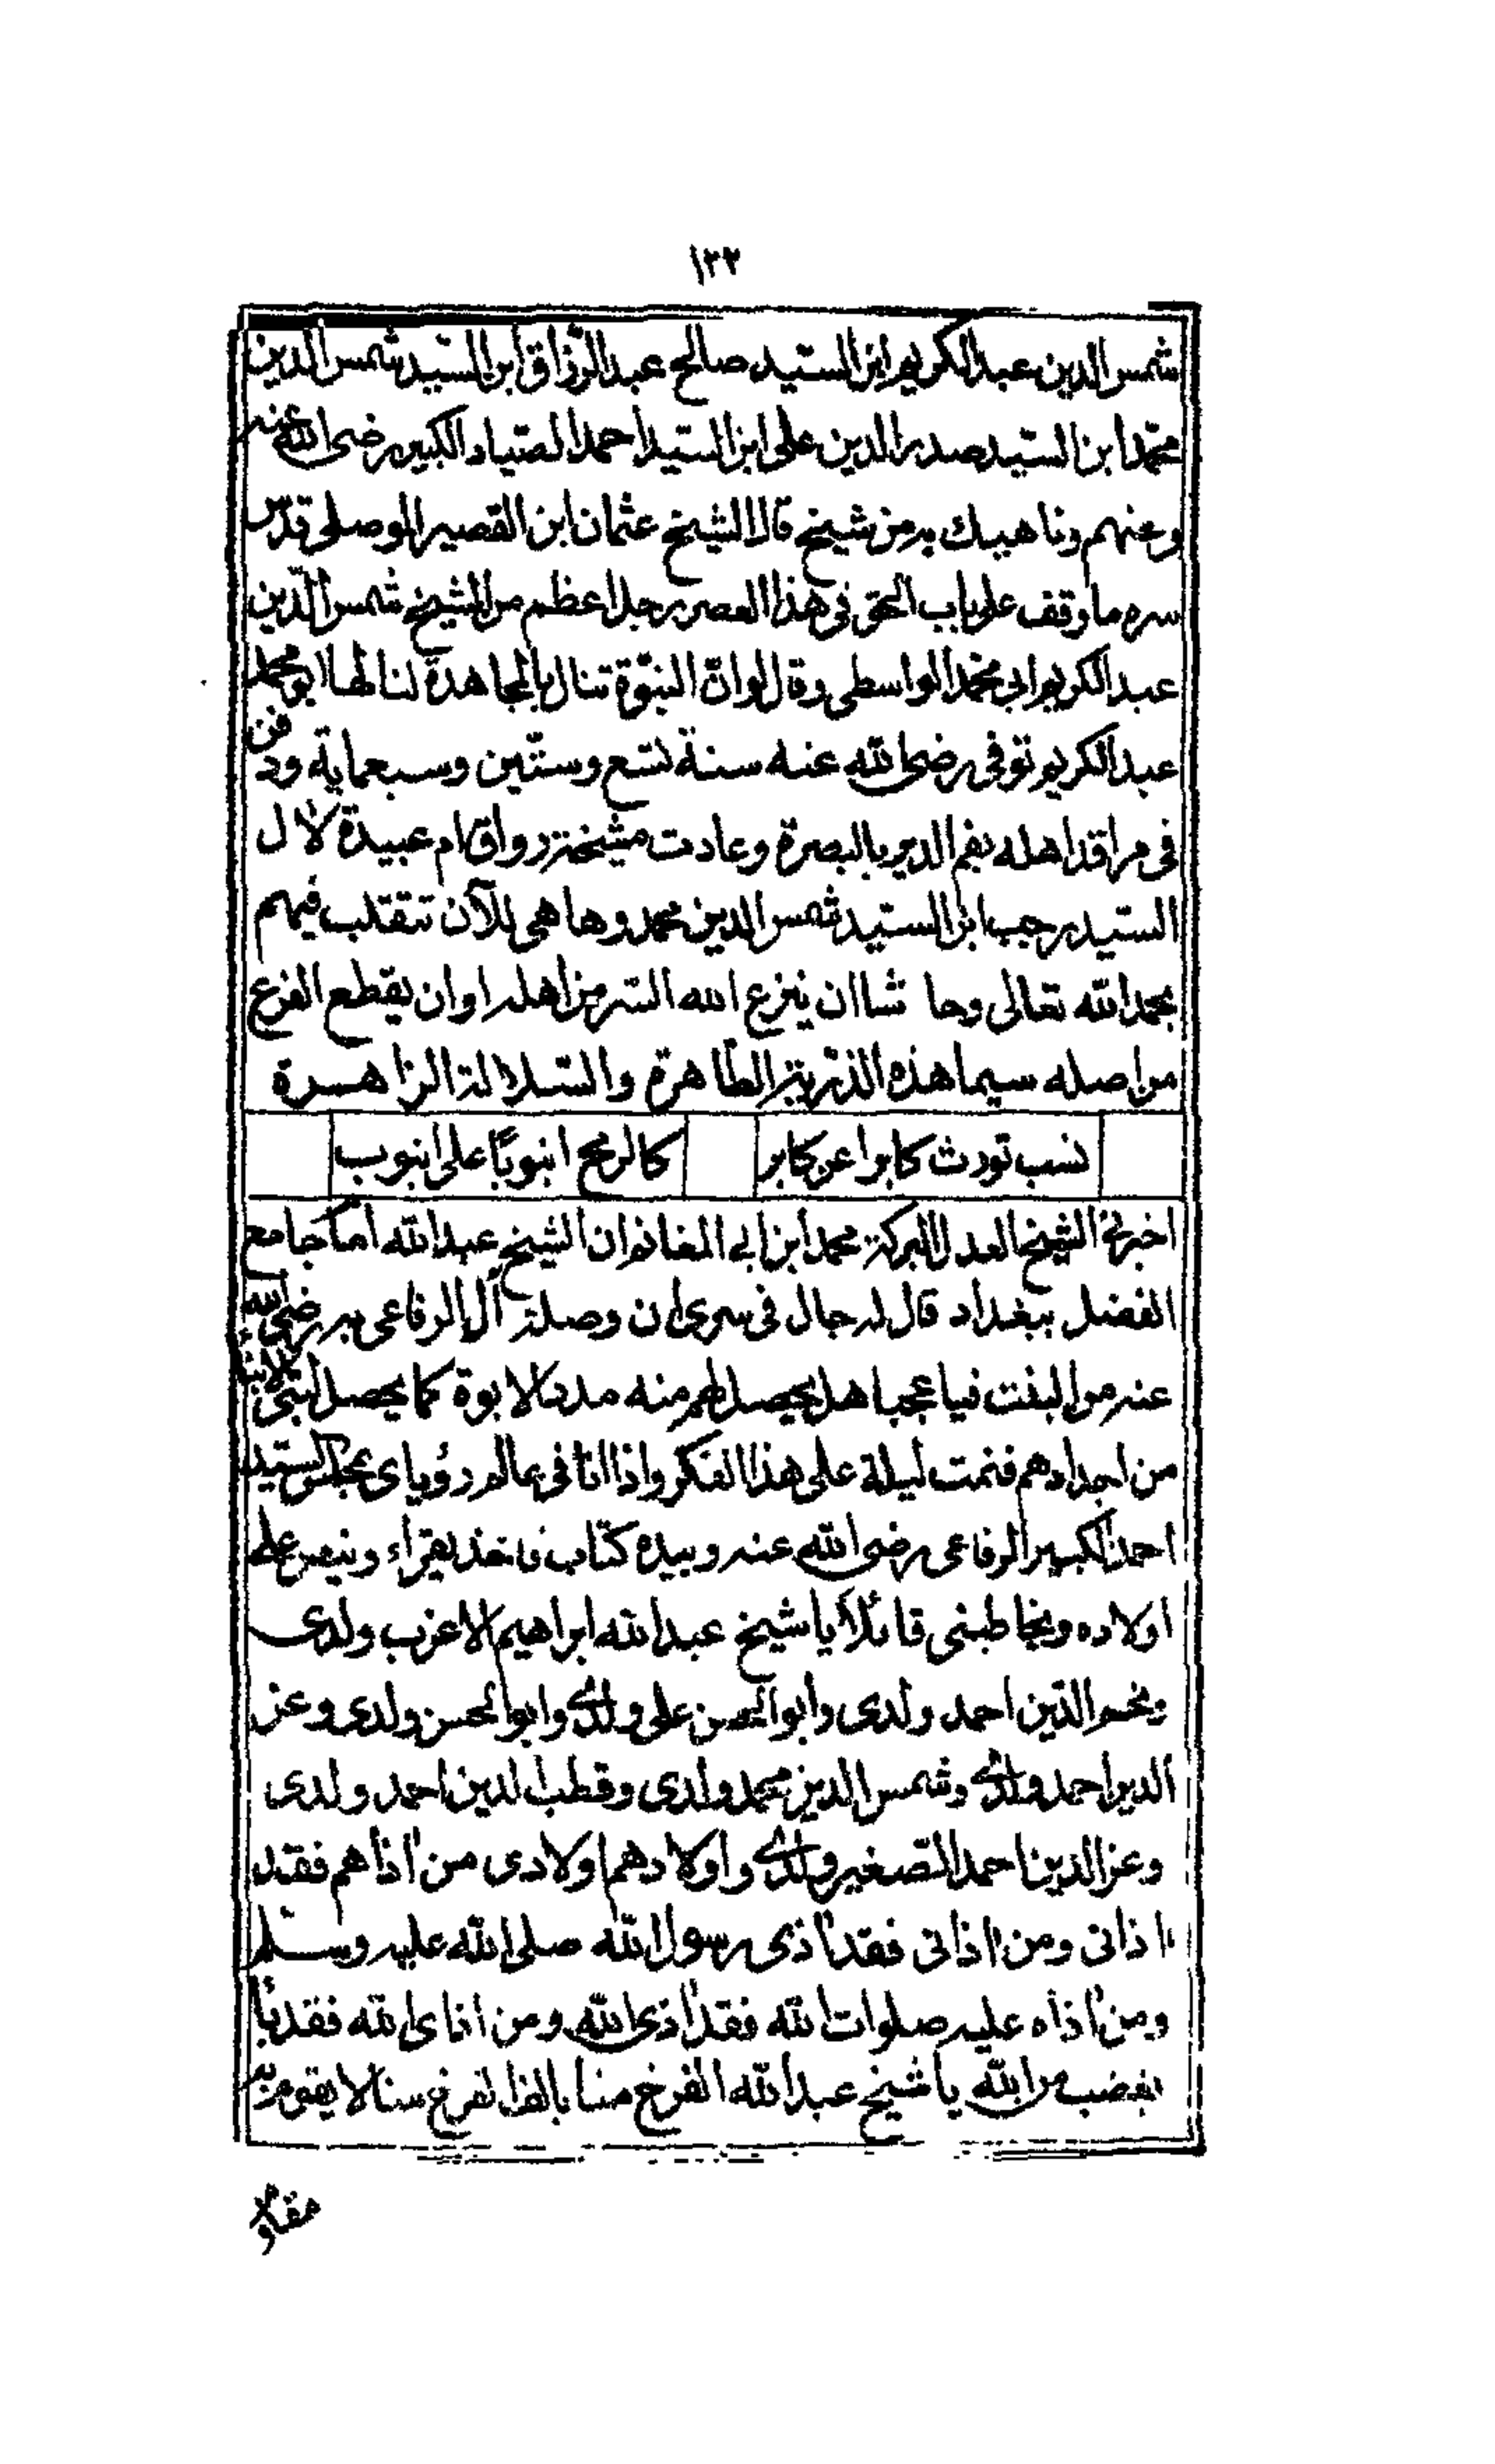 ١٣٣
شمس الدين عبد الكريم ابن السيد صالح عبد الرزاق ابن السيد شمس الدين
محمد ابن السيد صدر الدين على ابن السيد احمد الصياد الكبير رضى الله عنه
وعنهم وناهيك به من شيخ قال الشيخ عثمان ابن القصير الموصلى قدس
سره ما وقف على باب الحق فى هذا العصر رجل اعظم من الشيخ شمس الدين
عبد الكريم ابى محمد الواسطى وقال لو ان النبوة تنال بالمجاهدة لنالها ابو محمد
عبد الكريم توفى رضى الله عنه سنة تسع وستين وسبعماية ودفن
فى مراقد اهله بفم الدير بالبصرة وعادت مشيخة رواق ام عبيدة لآل
السيد رجب ابن السيد شمس الدين محمد وها هى للآن تتقلب فيهم
بحمد الله تعالى وحاشا ان ينزع الله السر من اهله او ان يقطع الفرع
من اصله سيما هذه الذرية الطاهرة والسلالة الزاهرة
نسب تورث كابرا عن كابر كالرمح انبوبًا على انبوب
اخبرنى الشيخ العدل البركة محمد ابن ابى المغانم ان الشيخ عبد الله امام جامع
الفضل ببغداد قال له جال فى سرى ان وصلة آل الرفاعى به رضى الله
عنه من البنت فيا عجبا هل يحصل لهم منه مدد الابوة كما يحصل للابناء
من اجدادهم فنمت ليلة على هذا الفكر واذا انا فى عالم رؤياى بمجلس السيد
احمد الكبير الرفاعى رضى الله عنه وبيده كتاب فاخذ يقراء وينص على
اولاده ويخاطبنى قائلا يا شيخ عبد الله ابراهيم الاعزب ولدى
ونجم الدين احمد ولدى وابو الحسن على ولدى وابو الحسن ولدى وعز
الدين احمد ولدى وشمس الدين محمد ولدى وقطب الدين احمد ولدى
وعز الدين احمد الصغير ولدى واولادهم اولادى من اذاهم فقد
اذانى ومن اذانى فقد اذى رسول الله صلى الله عليه وسلم
ومن اذاه عليه صلوات الله فقد اذى الله ومن اذى الله فقد بآ
بغضب من الله يا شيخ عبد الله الفرخ منا بالف الفرخ منا لا يقوم
مقاو